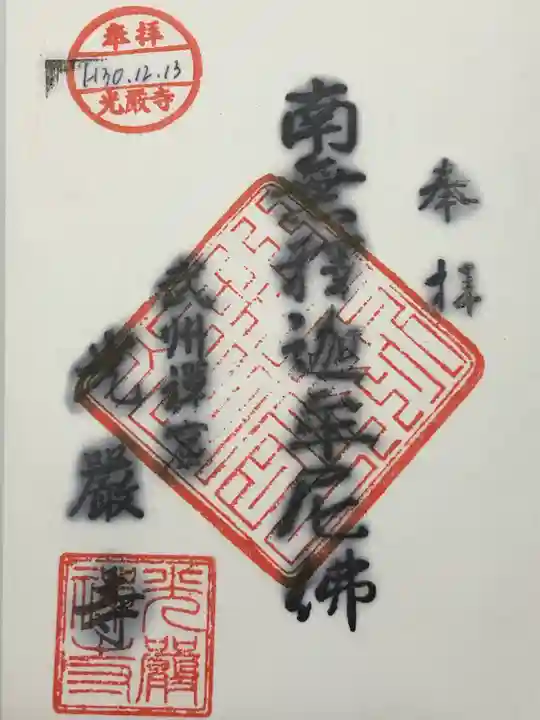 奉拝
H30.12.13
光厳寺
奉拝
南無釋迦牟尼佛
武州禅窟
光嚴寺
光嚴禅寺